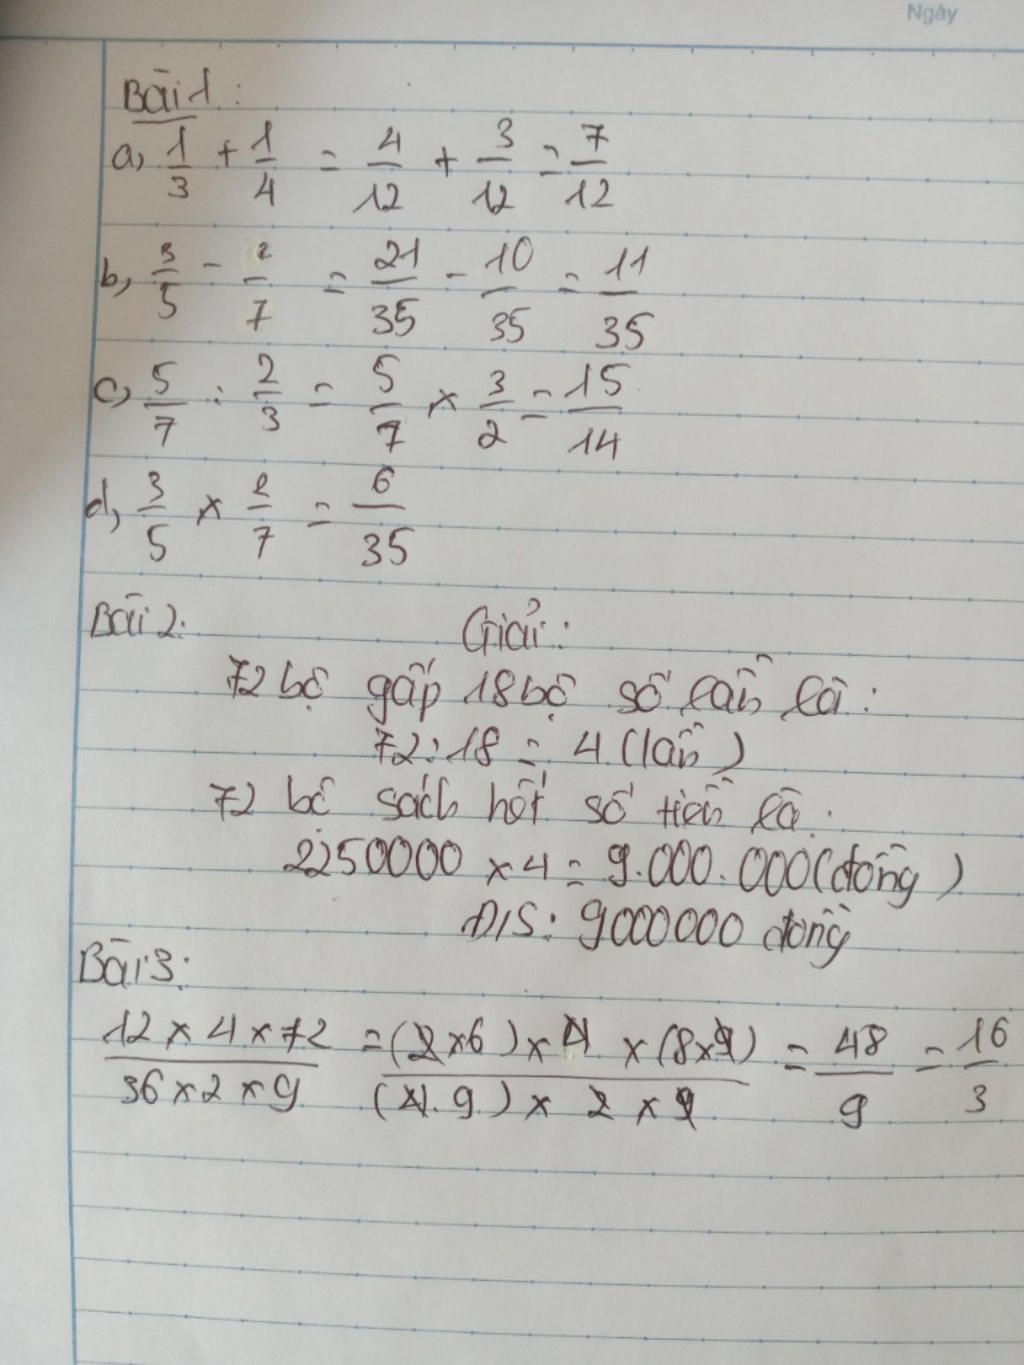 Ngày
Bài 1:
a, 1/3 + 1/4 = 4/12 + 3/12 = 7/12
b, 3/5 - 2/7 = 21/35 - 10/35 = 11/35
c, 5/7 : 2/3 = 5/7 × 3/2 = 15/14
d, 3/5 × 2/7 = 6/35
Bài 2: Giải:
72 bộ gấp 18 bộ số lần là:
72:18 = 4 (lần)
72 bộ sách hết số tiền là:
2250000 × 4 = 9.000.000 (đồng)
Đ/S: 9000000 đồng
Bài 3:
12 × 4 × 72 / 36 × 2 × 9 = (2×6) × 4 × (8×9) / (4.9) × 2 × 9 = 48/9 = 16/3